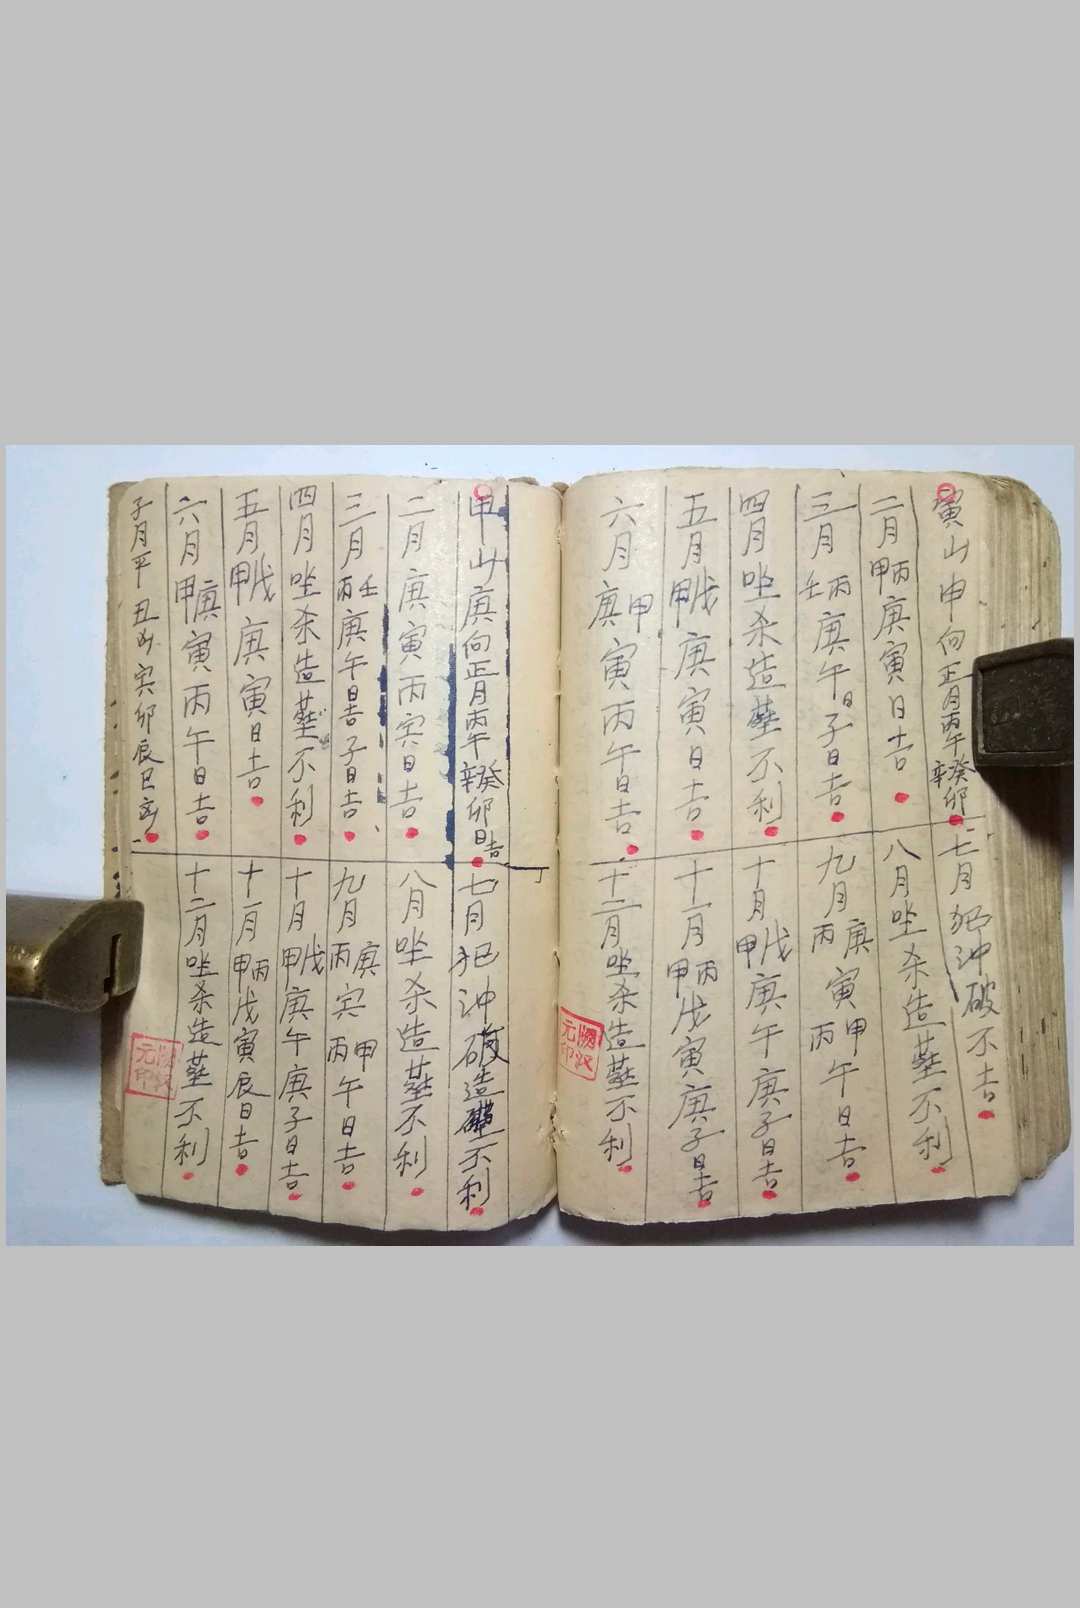 寅山申向正月丙午辛癸卯
二月甲丙庚寅日吉
三月壬丙庚午日子日吉
四月坐杀造塟不利
五月甲戊庚寅日吉
六月庚甲寅丙午日吉
七月犯冲破不吉
八月坐杀造塟不利
九月丙庚寅丙甲午日吉
十月甲戊庚午庚子日吉
十一月甲丙戊寅庚子日吉
十二月坐杀造塟不利
甲山庚向正月丙午辛癸卯日吉
二月庚寅丙寅日吉
三月丙壬庚午日吉子日吉
四月坐杀造塟不利
五月甲戊庚寅日吉
六月甲庚寅丙午日吉
子月平丑凶寅卯辰巳
七月犯冲破造塟不利
八月坐杀造塟不利
九月丙庚寅丙甲午日吉
十月甲戊庚午庚子日吉
十一月甲丙戊寅辰日吉
十二月坐杀造塟不利
元印
元印